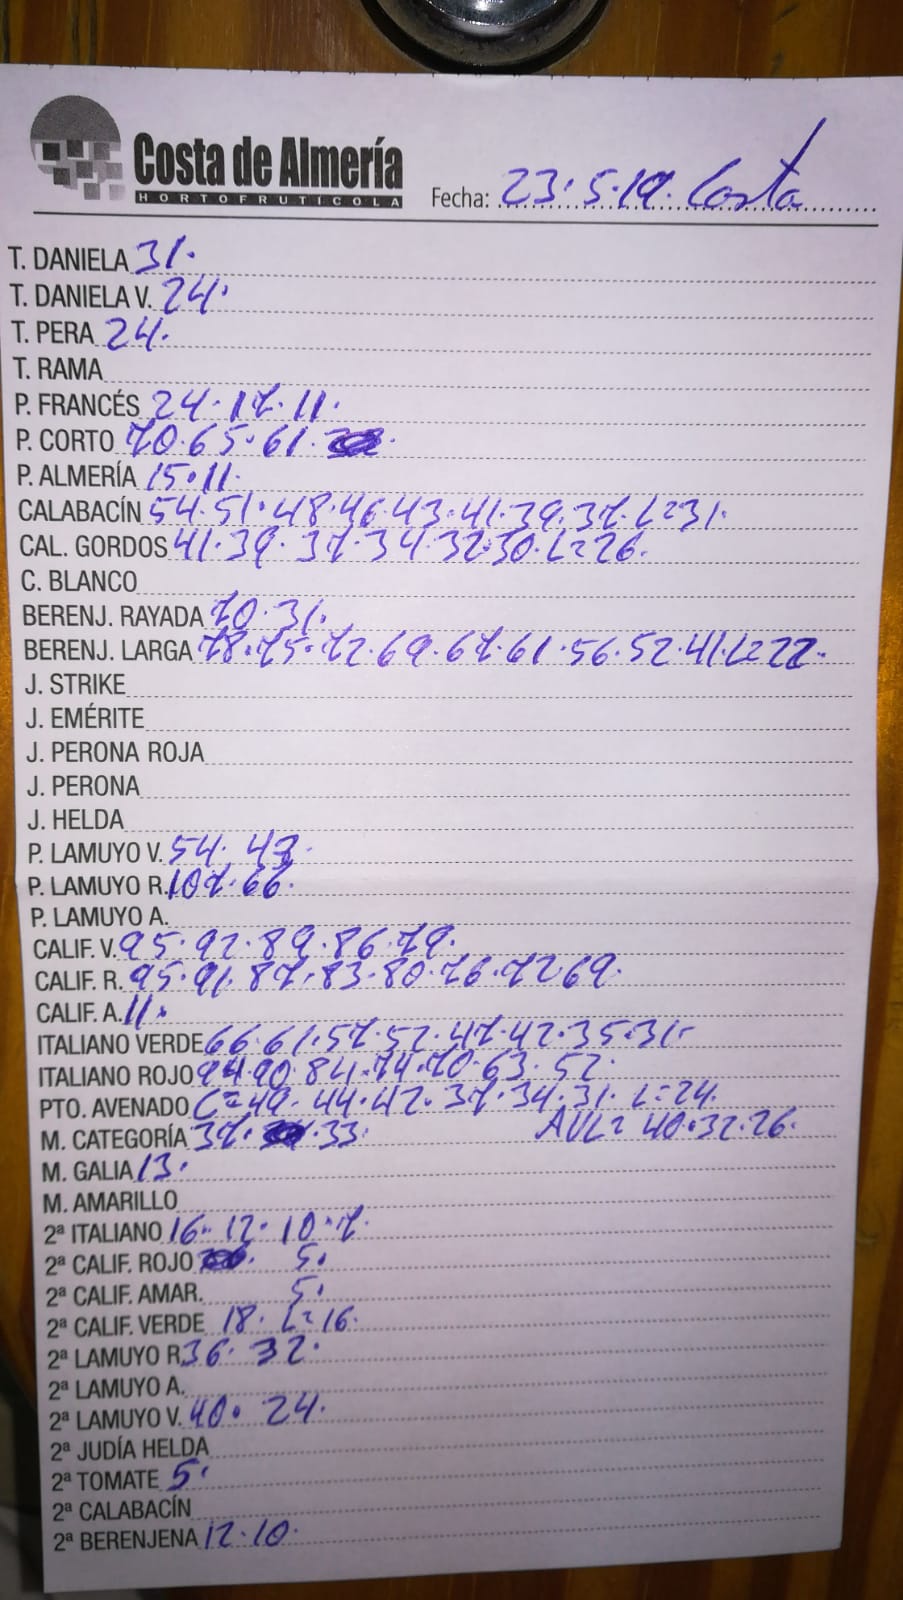 Costa de Almería
HORTOFRUTICOLA
Fecha: 23.5.19. Costa
T. DANIELA 31.
T. DANIELA V. 24.
T. PERA 24.
T. RAMA
P. FRANCÉS 24.17.11.
P. CORTO 70.65.61.
P. ALMERÍA 15.11.
CALABACÍN 54.51.48.46.43.41.39.37.L=31.
CAL. GORDOS 41.39.37.34.32.30.L=26.
C. BLANCO
BERENJ. RAYADA 70.31.
BERENJ. LARGA 78.75.72.69.67.61.56.52.41.L=22.
J. STRIKE
J. EMÉRITE
J. PERONA ROJA
J. PERONA
J. HELDA
P. LAMUYO V. 54.43.
P. LAMUYO R. 107.66.
P. LAMUYO A.
CALIF. V. 95.92.89.86.79.
CALIF. R. 95.91.87.83.80.76.72 69.
CALIF. A. 11.
ITALIANO VERDE 66.61.57.52.47.42.35.31-
ITALIANO ROJO 94 90.84.74.70.63.52.
PTO. AVENADO C=49.44.42.37.34.31.L=24.
M. CATEGORÍA 37. .33. AVL= 40.32.26.
M. GALIA 13.
M. AMARILLO
2ª ITALIANO 16.12.10.7.
2ª CALIF. ROJO 5.
2ª CALIF. AMAR. 5.
2ª CALIF. VERDE 18. L=16.
2ª LAMUYO R 36.32.
2ª LAMUYO A.
2ª LAMUYO V. 40.24.
2ª JUDÍA HELDA
2ª TOMATE 5.
2ª CALABACÍN
2ª BERENJENA 12.10.